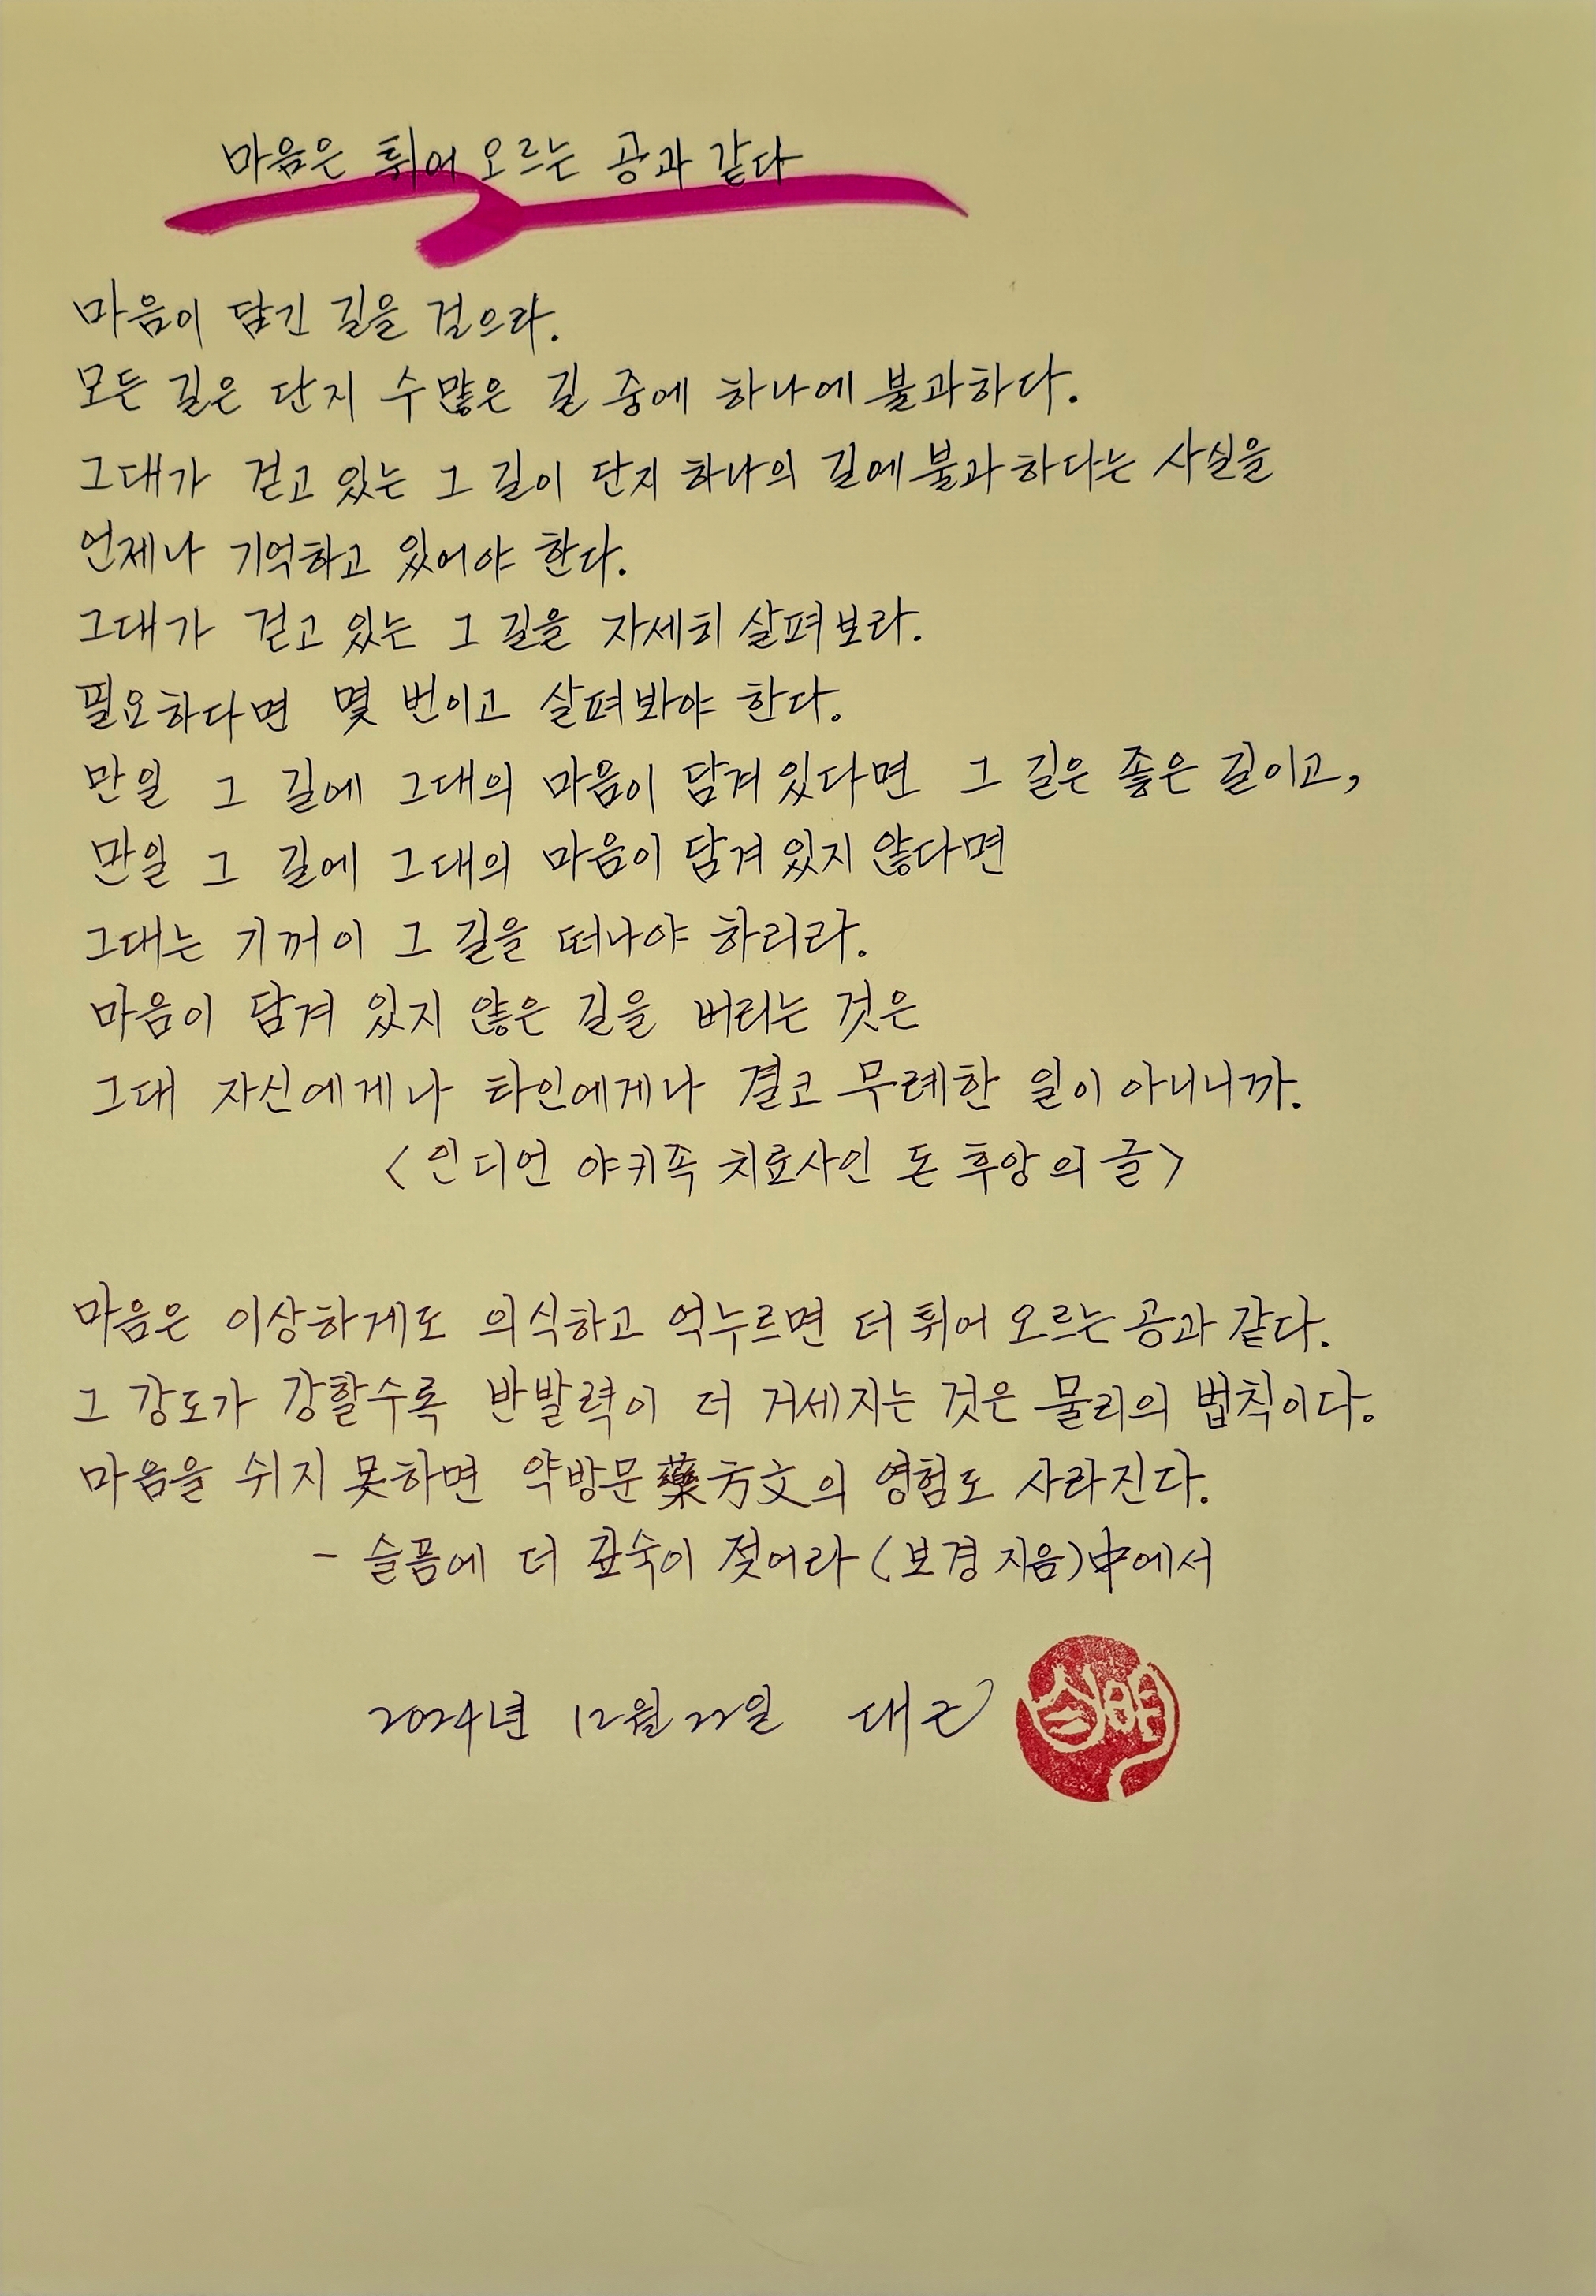 마음은 튀어 오르는 공과 같다
마음이 담긴 길을 걸으라.
모든 길은 단지 수많은 길 중에 하나에 불과하다.
그대가 걷고 있는 그 길이 단지 하나의 길에 불과하다는 사실을
언제나 기억하고 있어야 한다.
그대가 걷고 있는 그 길을 자세히 살펴보라.
필요하다면 몇 번이고 살펴봐야 한다.
만일 그 길에 그대의 마음이 담겨 있다면 그 길은 좋은 길이고,
만일 그 길에 그대의 마음이 담겨 있지 않다면
그대는 기꺼이 그 길을 떠나야 하리라.
마음이 담겨 있지 않은 길을 버리는 것은
그대 자신에게나 타인에게나 결코 무례한 일이 아니니까.
<인디언 야키족 치료사인 돈 후앙의 글>
마음은 이상하게도 의식하고 억누르면 더 튀어 오르는 공과 같다.
그 강도가 강할수록 반발력이 더 거세지는 것은 물리의 법칙이다.
마음을 쉬지 못하면 약방문藥方文의 영험도 사라진다.
- 슬픔에 더 깊숙이 젖어라 (보경 지음)中에서
2024년 12월 22일 대근